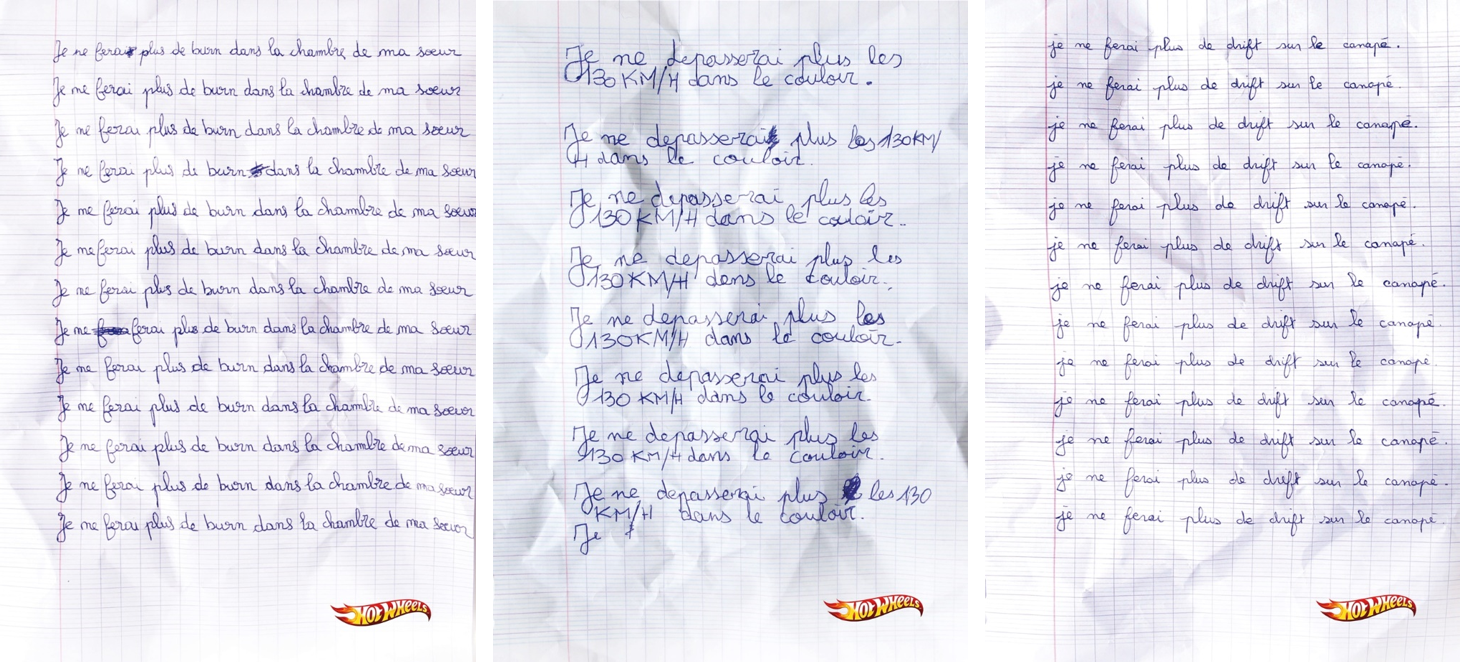 Je ne ferai plus de burn dans la chambre de ma sœur
Je ne ferai plus de burn dans la chambre de ma sœur
Je ne ferai plus de burn dans la chambre de ma sœur
Je ne ferai plus de burn dans la chambre de ma sœur
Je ne ferai plus de burn dans la chambre de ma sœur
Je ne ferai plus de burn dans la chambre de ma sœur
Je ne ferai plus de burn dans la chambre de ma sœur
Je ne ferai plus de burn dans la chambre de ma sœur
Je ne ferai plus de burn dans la chambre de ma sœur
Je ne ferai plus de burn dans la chambre de ma sœur
Je ne ferai plus de burn dans la chambre de ma sœur
Je ne ferai plus de burn dans la chambre de ma sœur
Je ne ferai plus de burn dans la chambre de ma sœur
HOT WHEELS
Je ne depasserai plus les
130 KM/H dans le couloir.
Je ne depasserai plus les 130 KM/
H dans le couloir.
Je ne depasserai plus les
130 KM/H dans le couloir.
Je ne depasserai plus les
130 KM/H dans le couloir.
Je ne depasserai plus les
130 KM/H dans le couloir.
Je ne depasserai plus les
130 KM/H dans le couloir.
Je ne depasserai plus les
130 KM/H dans le couloir.
Je ne depasserai plus les 130
KM/H dans le couloir.
Je
HOT WHEELS
je ne ferai plus de drift sur le canapé.
je ne ferai plus de drift sur le canapé.
je ne ferai plus de drift sur le canapé.
je ne ferai plus de drift sur le canapé.
je ne ferai plus de drift sur le canapé.
je ne ferai plus de drift sur le canapé.
je ne ferai plus de drift sur le canapé.
je ne ferai plus de drift sur le canapé.
je ne ferai plus de drift sur le canapé.
je ne ferai plus de drift sur le canapé.
je ne ferai plus de drift sur le canapé.
je ne ferai plus de drift sur le canapé.
je ne ferai plus de drift sur le canapé.
HOT WHEELS